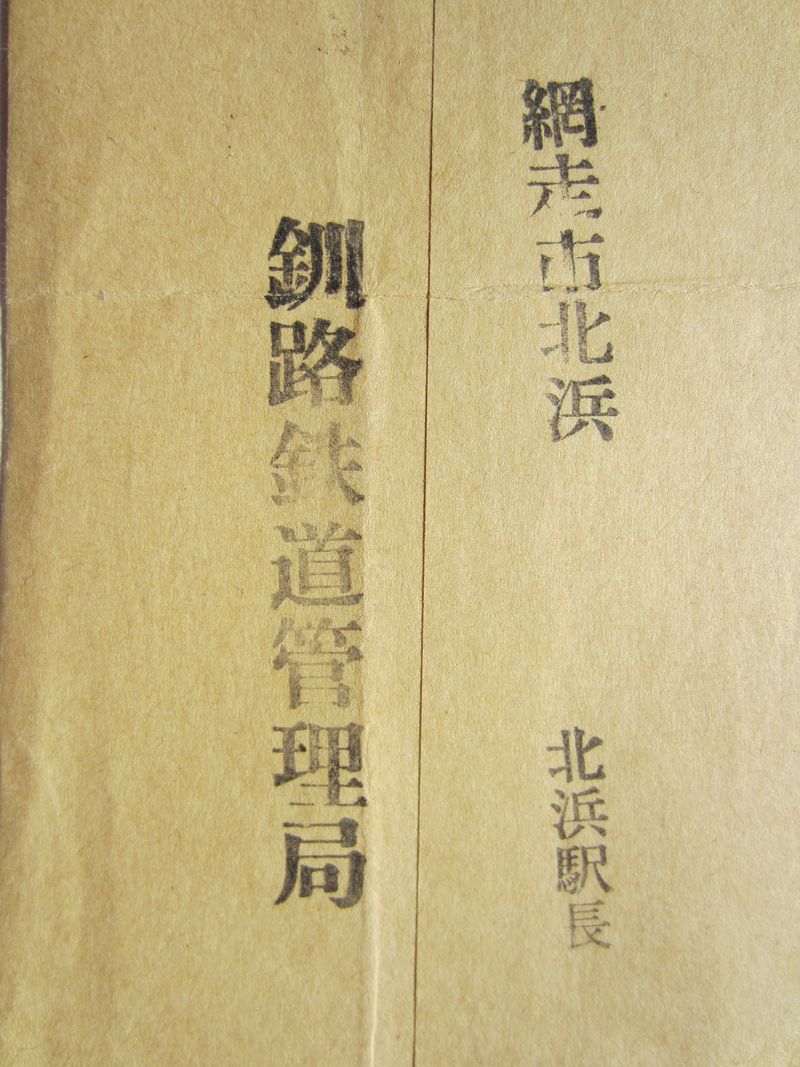 網走市北浜
北浜駅長
釧路鉄道管理局